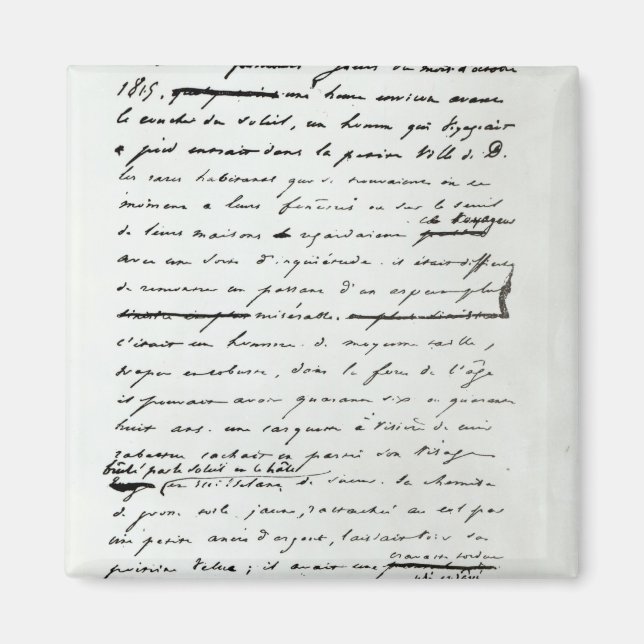 premiers jours du mois d'octobre
1815, une heure environ avant
le coucher du soleil, un homme qui voyageait
à pied entrait dans la petite ville de D.
les rares habitants qui se trouvaient en ce
moment à leurs fenêtres ou sur le seuil
le voyageur
de leurs maisons regardaient
avec une sorte d'inquiétude. il était difficile
de rencontrer un passant d'un aspect plus
misérable.
c'était un homme de moyenne taille,
trapu et robuste, dans la force de l'âge
il pouvait avoir quarante six ou quarante
huit ans. une casquette à visière de cuir
rabattue cachait en partie son visage
brûlé par le soleil et le hâle
et ruisselant de sueur. sa chemise
de grosse toile jaune, rattachée au col par
une petite ancre d'argent, laissait voir sa
cravate tordue
poitrine velue; il avait une